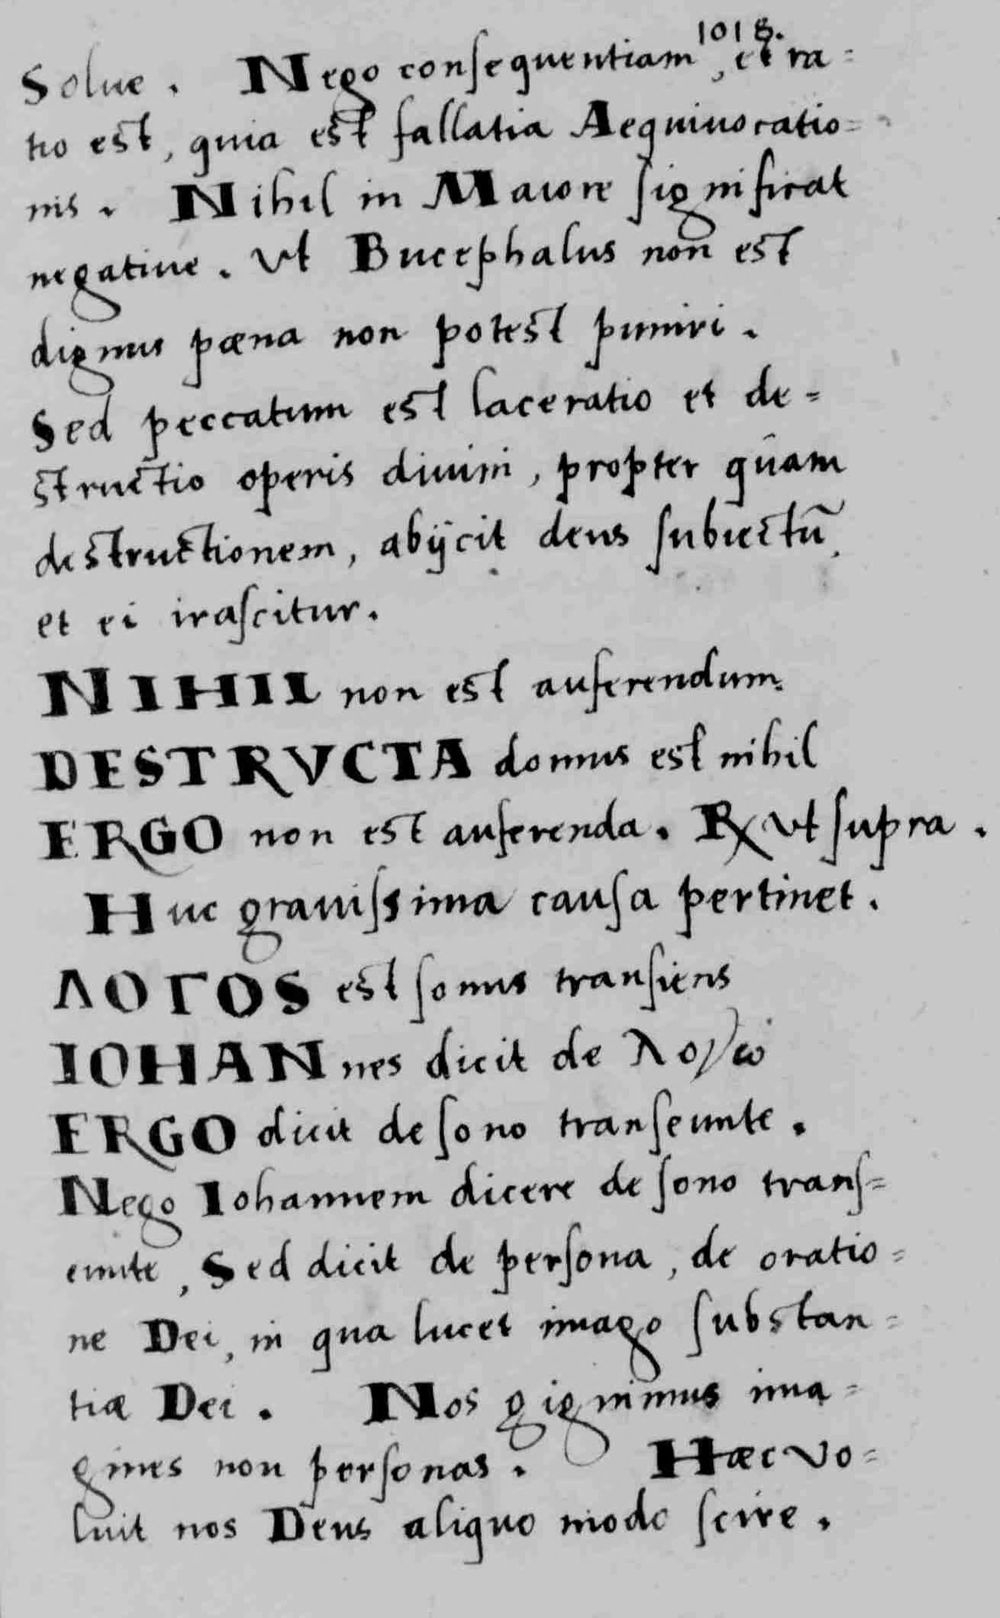 1018.
Solue. Nego consequentiam, et ra=
tio est, quia est fallatia Aequiuocatio=
nis. Nihil in Maiore significat
negatiue. Vt Bucephalus non est
dignus pœna non potest puniri.
Sed peccatum est laceratio et de=
structio operis diuini, propter quam
destructionem, abijcit deus subiectū,
et ei irascitur.
NIHIL non est auferendum.
DESTRVCTA domus est nihil
ERGO non est auferenda. ℞ Vt supra.
Huc grauissima causa pertinet.
ΛΟΓΟS est sonus transiens
IOHANnes dicit de λογω
ERGO dicit de sono transeunte.
Nego Iohannem dicere de sono trans=
eunte, Sed dicit de persona, de oratio=
ne Dei, in qua lucet imago substan=
tiæ Dei. Nos gignimus ima=
gines non personas. Hæc vo=
luit nos Deus aliquo modo scire.